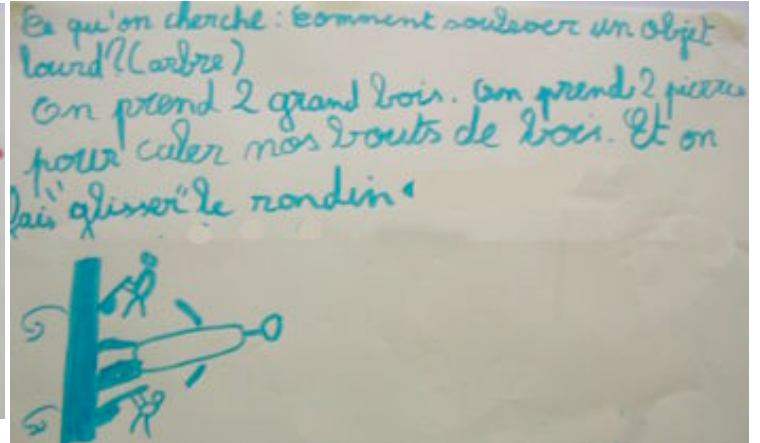 Ce qu'on cherche : Comment soulever un objet
lourd? (arbre)
On prend 2 grand bois. On prend 2 pierres
pour caler nos bouts de bois. Et on
fais "glisser" le rondin.